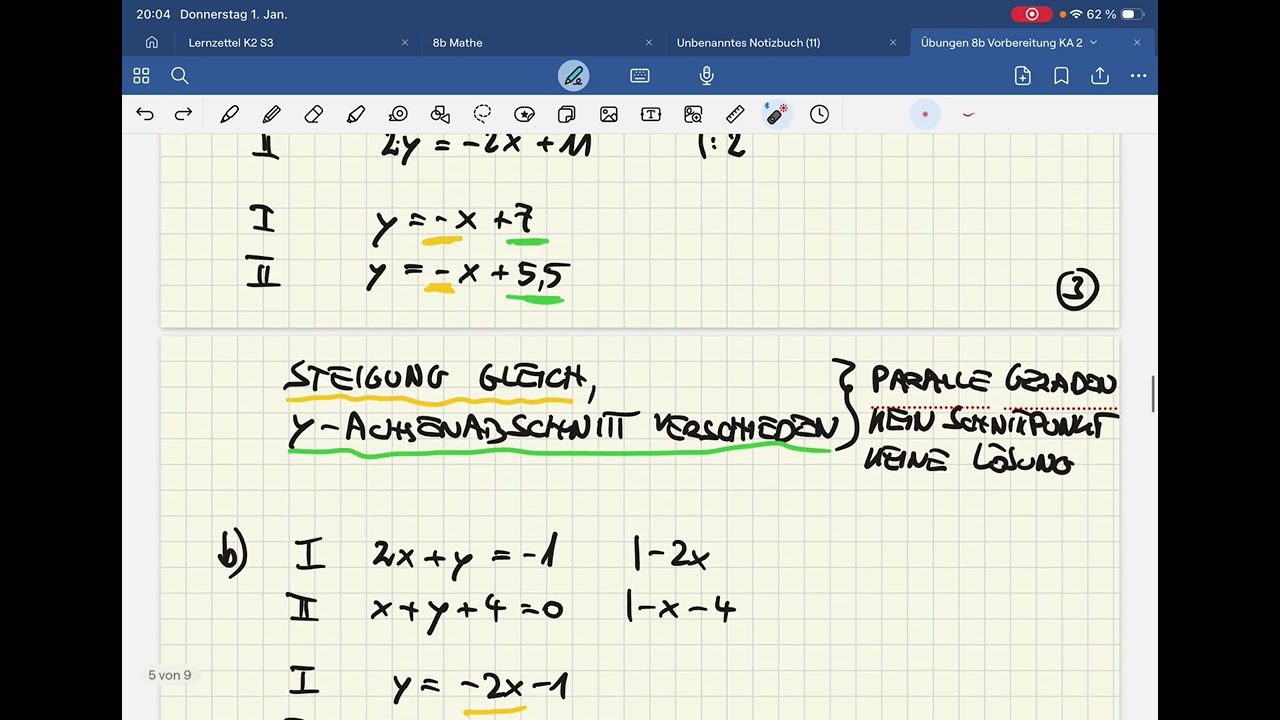 20:04 Donnerstag 1. Jan. 62 %
Lernzettel K2 S3
8b Mathe
Unbenanntes Notizbuch (11)
Übungen 8b Vorbereitung KA 2
II 2y = -2x + 11 |: 2
I y = - x + 7
II y = - x + 5,5
3
STEIGUNG GLEICH,
y-ACHSENABSCHNITT VERSCHIEDEN
PARALLE GERADEN
KEIN SCHNITTPUNKT
KEINE LÖSUNG
b) I 2x + y = -1 |-2x
II x + y + 4 = 0 |-x - 4
5 von 9
I y = -2x - 1